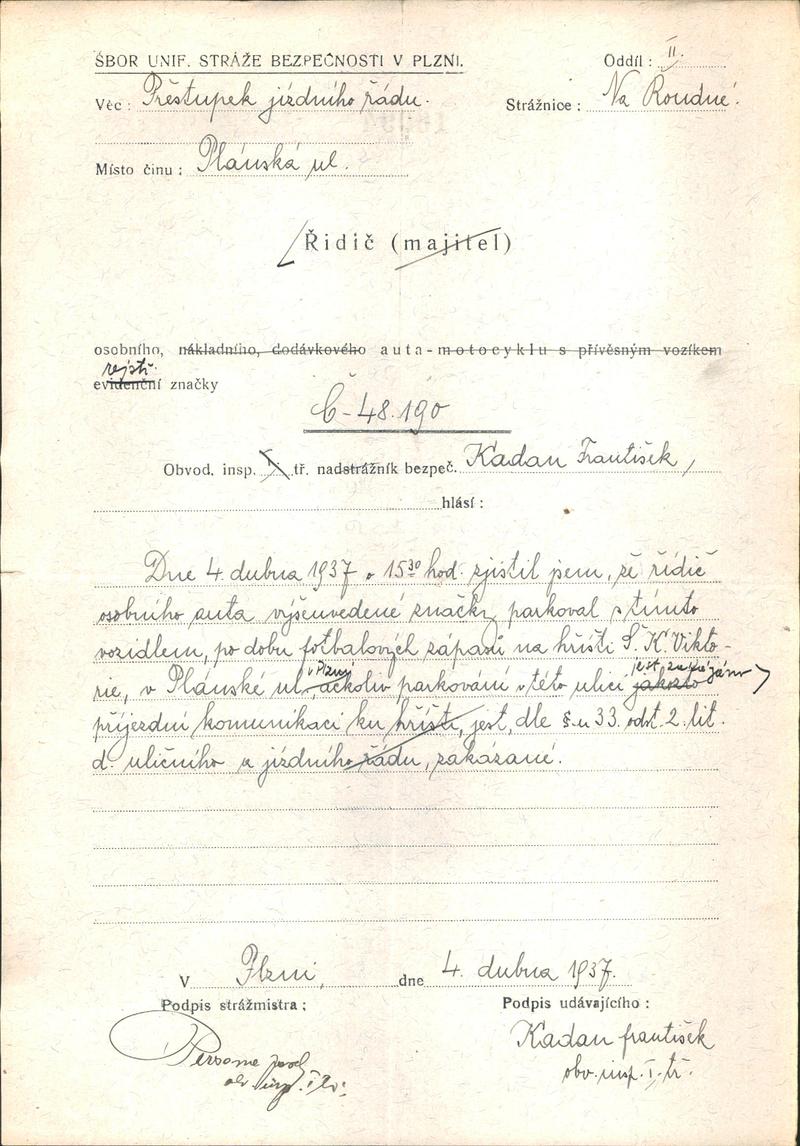 SBOR UNIF. STRÁŽE BEZPEČNOSTI V PLZNI.
Oddíl: II.
Věc: Přestupek jízdního řádu.
Strážnice: Na Roudné.
Místo činu: Plánská ul.
Řidič (majitel)
osobního, nákladního, dodávkového auta-motocyklu s přívěsným vozíkem
rejstř.
evidenční značky
Č-48.190
Obvod. insp. I. tř. nadstrážník bezpeč. Kadan František,
hlásí:
Dne 4. dubna 1937 o 15³⁰ hod. zjistil jsem, že řidič
osobního auta výšeuvedené značky parkoval s tímto
vozidlem, po dobu fotbalových zápasů na hřišti S. K. Vikto-
v Plzni jest zakázáno
rie, v Plánské ul., ačkoliv parkování v této ulici jakožto
příjezdní komunikaci ku hřišti, jest, dle §-u 33. odst. 2. lit.
d. uličního a jízdního řádu, zakázané.
V Plzni, dne 4. dubna 1937.
Podpis strážmistra:
Podpis udávajícího:
Kadan František
obv. insp. I. tř.
obv. insp. I. tř.